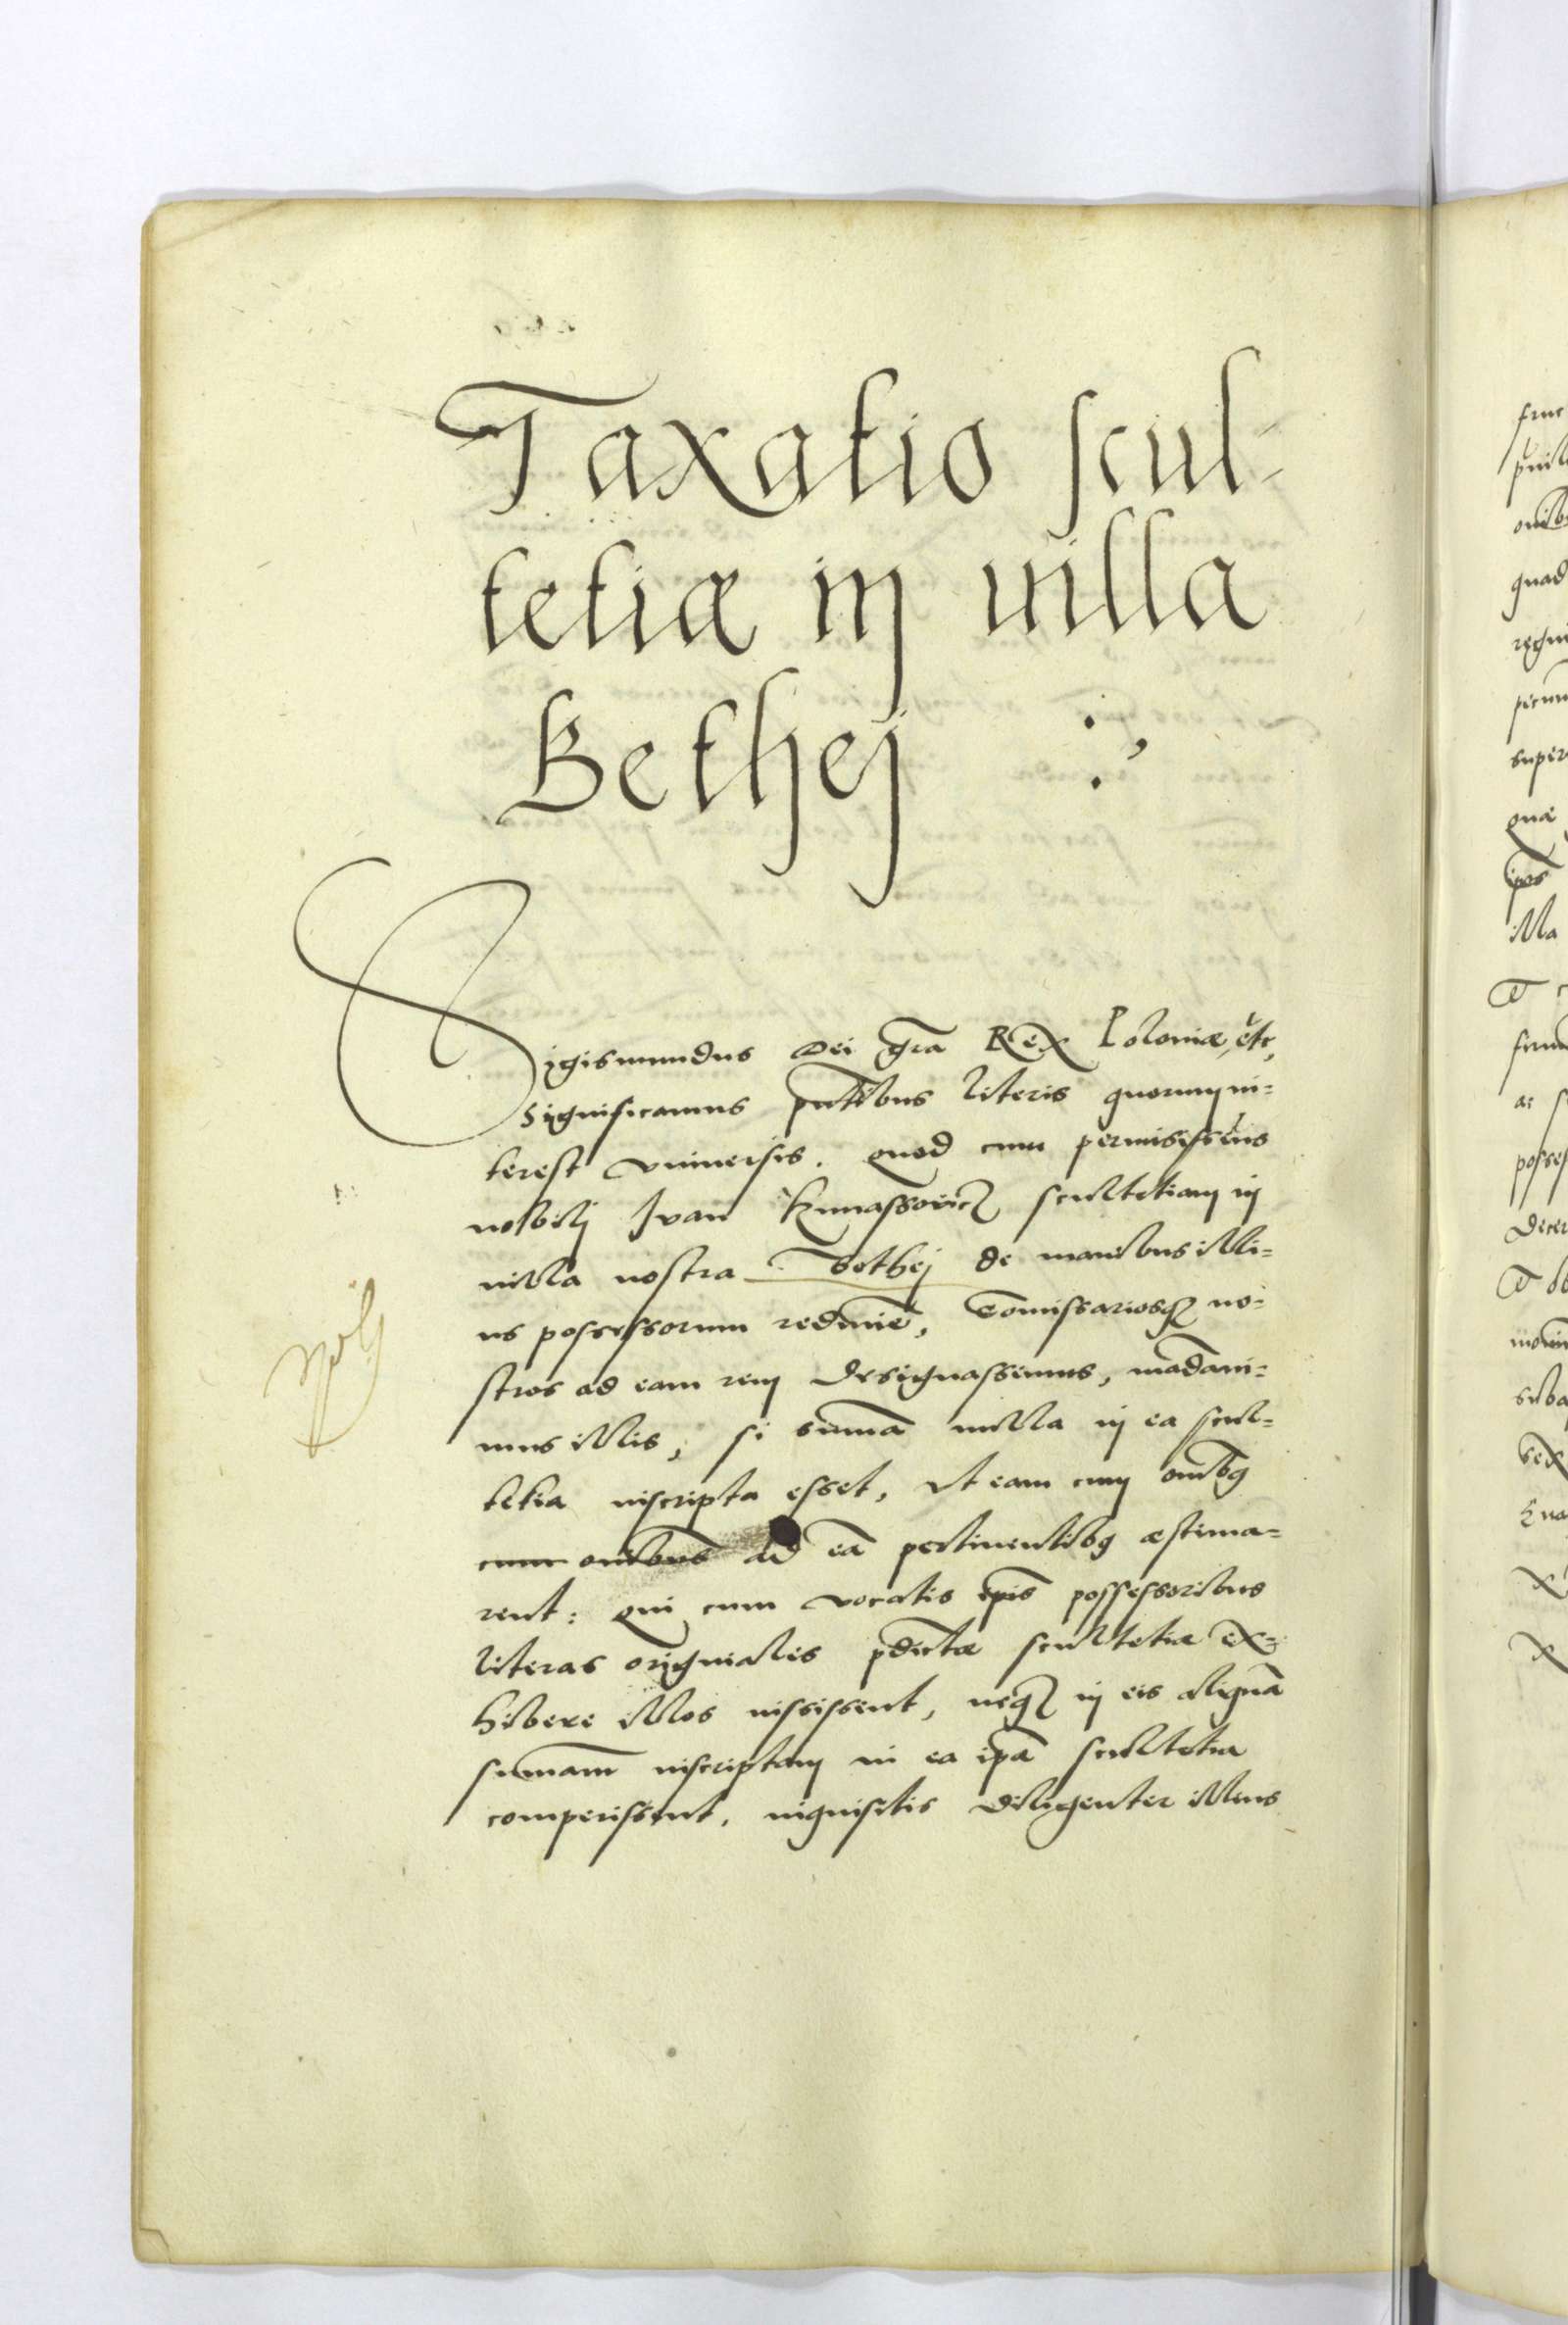 Taxatio scul-
tetiæ in uilla
Bethej
Sigismundus Dei gra̅ Rex Poloniæ, etc,
Significamus pn̅tibus literis quorum in-
terest vniuersis. quod cum permisissemus
nobilj Ivan Kunassovicz scultetiam in
uilla nostra Bethej de manibus illi-
us possessorum redimĕ, Com̅issariosq3 no-
stros ad eam rem designassemus, ma̅daui-
mus illis, si sum̅a nulla in ea scul-
tetia inscripta esset, vt eam cum om̅ibg
cum om̅ibus ad ea̅ pertinentibg æstima-
rent: qui cum vocatis ip̅is possessoribus
literas originales p̅dictæ scultetiæ ex-
hibere illos iussissent, neq3 in eis aliqua̅
sum̅am inscriptam in ea ip̅a scultetia
comperissent, inquisitis diligenter illius